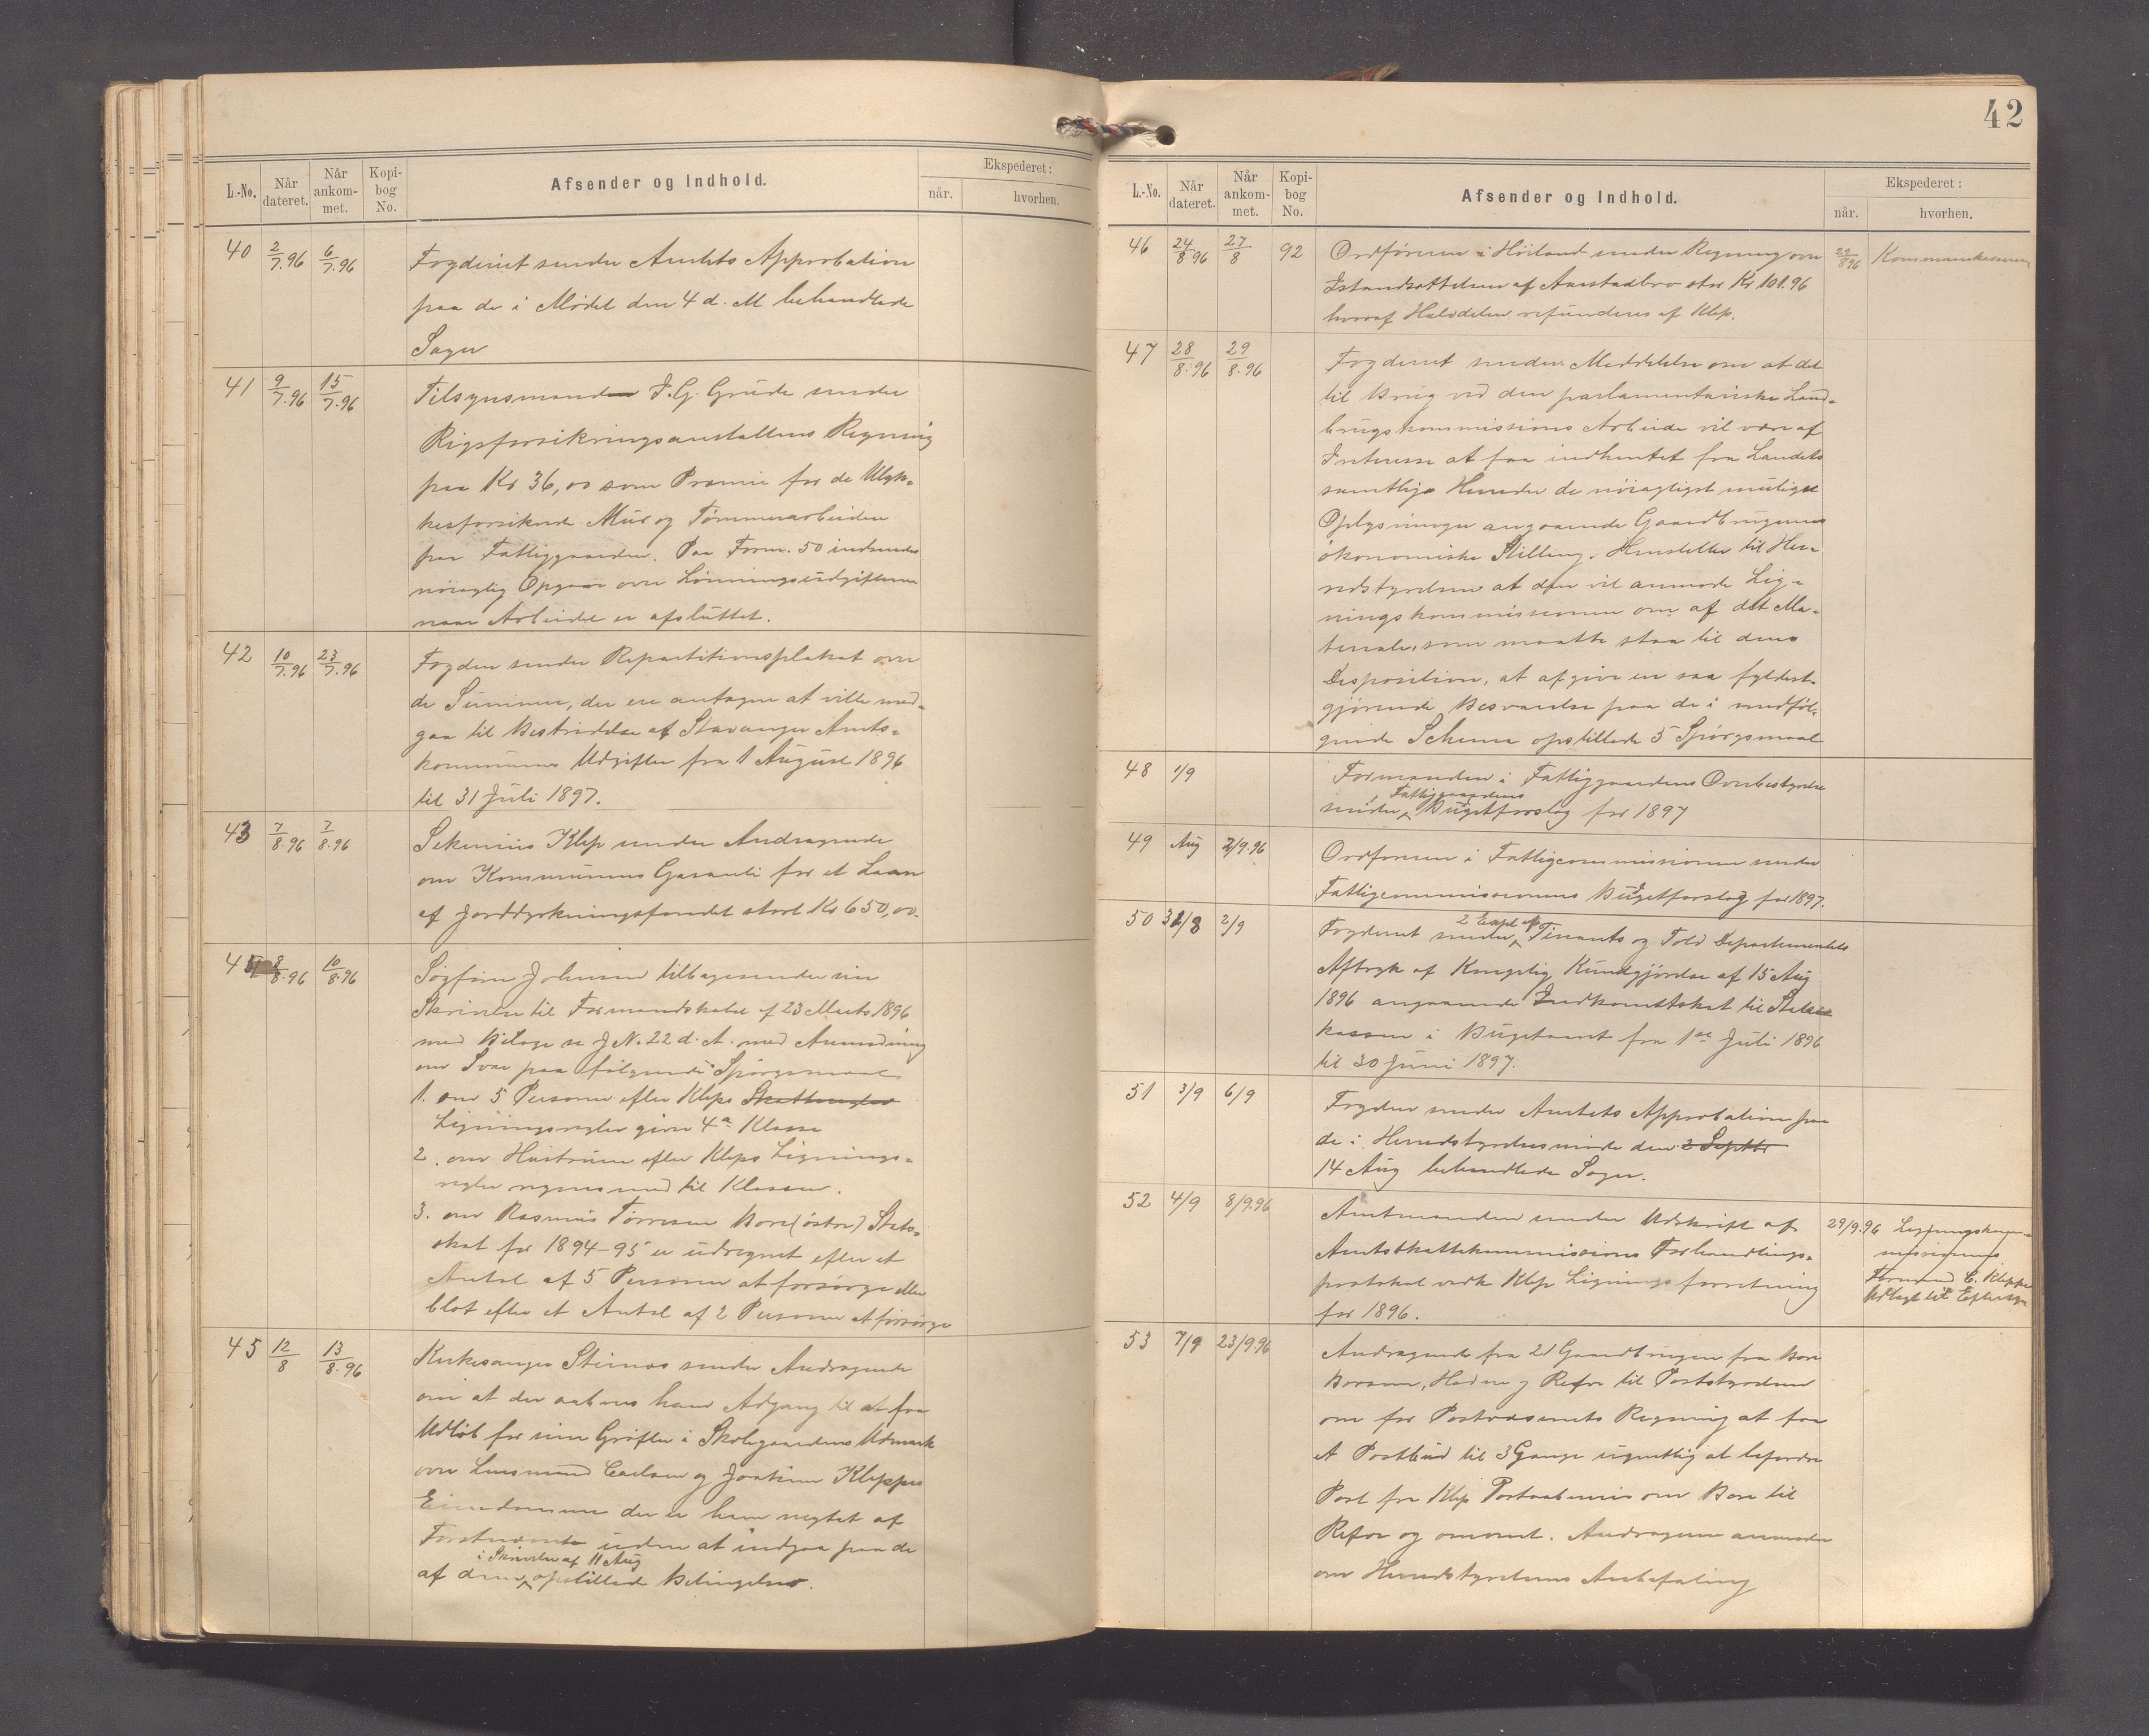 L.-No. Når dateret. Når ankommet. Kopibog No. Afsender og Indhold. Ekspederet: når. hvorhen.
40 2/7.96 6/7.96 Fogderiet sender Amtets Approbation
paa de i Mødet den 4 d. M behandlede
Sager
41 9/7.96 15/7.96 Tilsynsmanden J. G. Grude sender
Rigsforsikringsanstaltens Regning
paa Kr 36,00 som Præmie for de Ulyk-
kesforsikrede Mur og Tømmerarbeiden
paa Fattiggaarden. Paa Form. 50 indsendes
nøiagtig Opgave over Lønningsudgifterne
naar Arbeidet er afsluttet.
42 10/7.96 23/7.96 Fogden sender Repartitionsplakat over
de Summer, der ere antagne at ville med-
gaa til Bestridelse af Stavanger Amts-
kommunes Udgifter fra 1 August 1896
til 31 Juli 1897.
43 7/8.96 7/8.96 Klep sender Andragende
om Kommunens Garanti for et Laan
af Jorddyrkningsfondet stort Kr 650,00.
4 8/8.96 10/8.96 Sigfrin Johnsen tilbagesender sin
Skrivelse til Formandskabet af 23 Marts 1896
med Bilage se J N. 22 d. A. med Anmodning
om Svar paa følgende Spørgsmaal
1. om 5 Personer efter Kleps Skatteregler
Ligningsregler giver 4de Klasse
2. om Hustruen efter Kleps Lignings-
regler regnes med til Klassen.
3. om Rasmus Tørresen Bore (østre) Stats-
skat for 1894-95 er udregnet efter et
Antal af 5 Personer at forsørge eller
blot efter et Antal af 2 Personer at forsørge
45 12/8 13/8.96 Kirkesanger Steinnes sender Andragende
om at der aabnes ham Adgang til at faa
Udløb for sine Grøfter i Skolegaardens Udmark
over Lensmand Carlsen og Joakim Kleppes
Eiendomme der er ham negtet af
uden at indgaa paa de
i Skrivelse af 11 Aug
af dem opstillede Betingelser.
42
L.-No. Når dateret. Når ankommet. Kopibog No. Afsender og Indhold. Ekspederet: når. hvorhen.
46 24/8 96 27/8 92 Ordføreren i Høiland sender Regning over 29/8 96 Kommunekasseren
Istandsættelsen af Aarstadbro stor Kr 101.96
hvoraf Halvdelen refunderes af Klep.
47 28/8.96 29/8.96 Fogderiet sender Meddelelse om at det
til Brug ved den parlamentariske Land-
brugskommissions Arbeide vil være af
Interesse at faa indhentet fra Landets
samtlige Herreder de nøiagtigst mulige
Oplysninger angaaende Gaardbrugernes
økonomiske Stilling. Henstiller til Her-
redstyrelsen at den vil anmode Lig-
ningskommissionen om af det Ma-
teriale, som maatte staa til dens
Disposition, at afgive en saa fyldest-
gjørende Besvarelse paa de i medføl-
gende Schema opstillede 5 Spørgsmaal
48 1/9 Formanden i Fattiggaardens Overbestyrelse
Fattiggaardens
sender Budgetforslag for 1897
49 Aug 2/9.96 Ordføreren i Fattigcommissionen sender
Fattigcommissionens Budgetforslag for 1897.
50 31/8 2/9 2 Expl af
Fogderiet sender Finants og Told Departementets
Aftryk af Kongelig Kundgjørelse af 15 Aug
1896 angaaende Indkomstskat til Stats
kassen i Budgetaaret fra 1ste Juli 1896
til 30 Juni 1897.
51 3/9 6/9 Fogden sender Amtets Approbation paa
de i Herredstyrelsesmøde den 2 Septbr
14 Aug behandlede Sager.
52 4/9 8/9.96 Amtmanden sender Udskrift af 29/9.96 Ligningskom-
Amtsskattekommissions Forhandlings- missionens
protokol vedk Klep Ligningsforretning Formand C. Kleppe
for 1896. Udlagt til Eftersyn
53 7/9 23/9.96 Andragende fra 21 Gaardbrugere fra Bore
Hodne og Refve til Poststyrelsen
om for Postvæsenets Regning at faa
et Postbud til 3 Gange ugentlig at befordre
Post fra Klep Postaabneri over Bore til
Refve og omvendt. Andragerne anmoder
om Herredstyrelsens Anbefaling